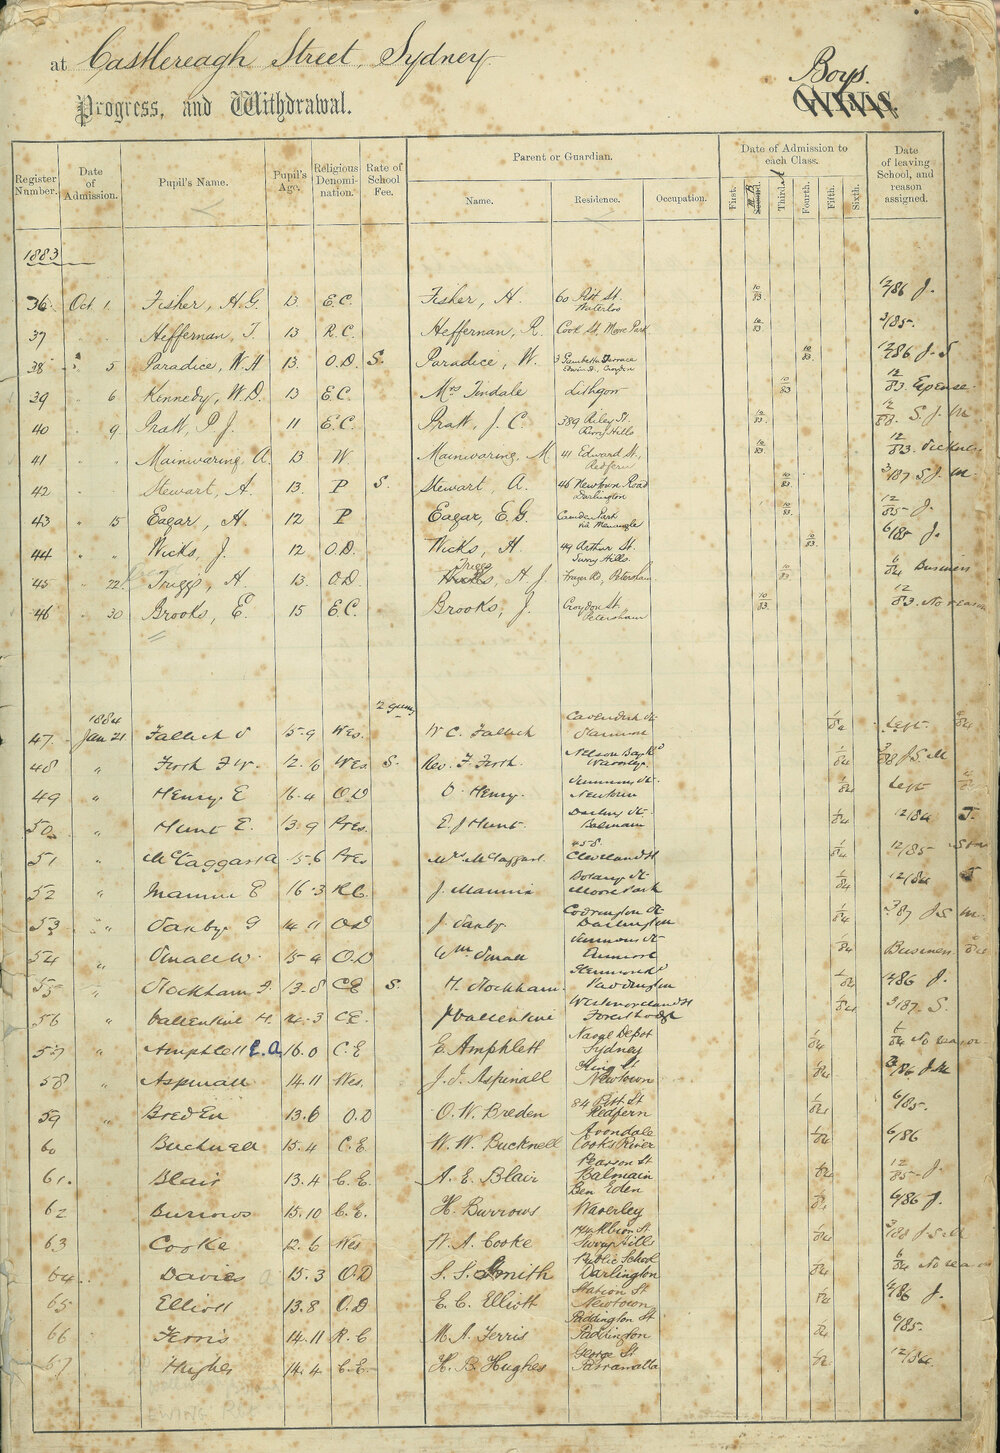 at Castlereagh Street, Sydney
Boys.
Progress, and Withdrawal.
GIRLS.
Register Number. Date of Admission. Pupil's Name. Pupil's Age. Religious Denomination. Rate of School Fee. Parent or Guardian. Date of Admission to each Class. Date of leaving School, and reason assigned.
Name. Residence. Occupation. First. Second. II B Third. A Fourth. Fifth. Sixth.
1883
36 Oct 1 Fisher, H.G. 13 E.C. Fisher, H. 60 Pitt St. Waterloo 10/83 12/86 J.
37 Heffernan, T. 13 R.C. Heffernan, R. Cook St, Moore Park 10/83 3/85.
38 " 5 Paradice, W.H 13. O.D S. Paradice, W. 3 Gambetta Terrace Edwin St, Croydon 10/83 12/86 J.S
39 " 6 Kennedy, W.D. 13 E.C. Mrs Tindale Lithgow 10/83 12/83. Expense.
40 " 9 Pratt, P J. 11 E.C. Pratt, J. C 389 Riley St. Surry Hills 10/83. 12/88. S.J.M
41 " " Mainwaring, A. 13 W. Mainwaring, M 41 Edward St, Redfern 10/83. 12/83.
42 " " Stewart, A. 13. P S. Stewart, A. 46 Newtown Road Darlington 10/83. 3/87 S.J.M.
43 " 15 Eagar, H. 12 P Eagar, E.G. Camden Park via Menangle 10/83. 12/85 J.
44 " " Wicks, J. 12 O.D. Wicks, H. 49 Arthur St. Surry Hills. 10/83. 6/85 J.
45 " 22 Triggs, H. 13. O.D. Triggs, H. J. Frazer Rd, Petersham. 10/83 6/84 Business
46 " 30 Brooks, E. 15 E.C. Brooks, J. Croydon St. Petersham 10/83. 12/83. No reason
1884
47 Jan 21 Fallick 15-9 Wes. W C. Fallick Cavendish St Stanmore 1/84 Left.
48 " Firth F W. 12.6 Wes S. Rev. F. Firth. Nelson Bay Rd Waverley. 1/84 J.S.M
49 " Henry E 16.4 O.D Henry. Simmons St. Newtown 1/84 Left
50 " Hunt E. 13.9 Pres. E J Hunt. Darling St. Balmain 1/84 12/84 J.
51 " McTaggart A 15.6 Pres Mrs McTaggart. 458 Cleveland St 1/84 12/85
52 " Mannix E 16-3 R.C. J. Mannix Botany St Moore Park 1/84 12/84 J
53 " Saxby G 14 11 O.D J. Saxby Codrington St Darlington 1/84 3/87 J.S.M.
54 " Small W. 15-9 O.D Wm Small Simmons St Enmore 1/84 Business
55 " Stockham F. 13-8 CE S. H. Stockham. Paddington 1/84 J.
56 " Vallentine H. 14-3 CE. J Vallentine Westmoreland St Forest Lodge 1/84 3/87. S.
57 " Amphlett E. A 16.0 C.E E. Amphlett Naval Depot Sydney 1/84 No reason
58 " Aspinall 14.11 Wes. J. J. Aspinall King St Newtown 1/84 /86 J.M
59 " Breden 13.6 O.D O. W. Breden 84 Pitt St Redfern 1/84 6/85.
60 Bucknell 15.4 C.E. W. W. Bucknell Avondale Cooks River 1/84 6/86
61. Blair 13.4 C.E. A. E. Blair Pearson St. Balmain 1/84 12/85 J.
62 Burrows 15.10 C.E. H. Burrows Ben Eden Waverley 1/84 6/86 J.
63 Cooke 12.6 Wes W. A. Cooke Albion St. Surry Hills 1/84 3/88 J.S.M
64 Davies 15.3 O.D S. S. Smith Public School Darlington 1/84 6/84 No reason
65 Elliott 13.8 O.D E. C. Elliott Station St. Newtown 1/84 6/86 J.
66 Ferris 14.11 R.C M. A. Ferris Paddington St Paddington 1/84 6/85.
67 Hughes 14.4 C.E. H. B. Hughes George St. Parramatta 1/84 12/84.